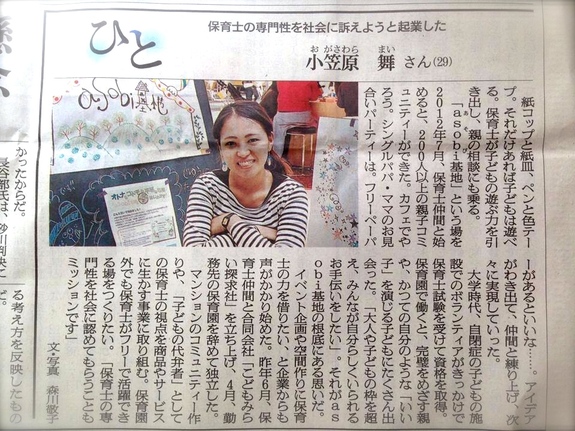 ひと
保育士の専門性を社会に訴えようと起業した
おがさわら　まい
小笠原　舞さん(29)
紙コップと紙皿、ペンと色テー
プ。それだけあれば子どもは遊べ
る。保育士が子どもの遊ぶ力を引
き出し、親の相談にも乗る。
「asobi基地」という場を
2012年7月、保育士仲間と始
めると、200人以上の親子コミ
ュニティーができた。カフェでや
ろう。シングルパパ・ママのお見
合いパーティーは。フリーペーパ
ーがあるといいな……。アイデア
がわき出て、仲間と練り上げ　次
々に実現していった。
大学時代、自閉症の子どもの施
設でのボランティアがきっかけで
保育士試験を受けて資格を取得。
保育園で働くと、完璧をめざす親
や、かつての自分のような「いい
子」を演じる子どもにたくさん出
会った。「大人や子どもの枠を超
え、みんなが自分らしくいられる
お手伝いをしたい」。それがas
obi基地の根底にある思いだ。
イベント企画や空間作りに保育
士の力を借りたい、と企業からも
声がかかり始めた。昨年6月、保
育士仲間と合同会社「こどもみら
い探求社」を立ち上げ、4月、勤
務先の保育園を辞めて独立した。
マンションのコミュニティー作
りや、「子どもの代弁者」として
の保育士の視点を商品やサービス
に生かす事業に取り組む。保育園
外でも保育士がフリーで活躍でき
る場をつくりたい。「保育士の専
門性を社会に認めてもらうことも
ミッションです」
文・写真　森川敬子
asobi基地
かったからだ。
長谷部氏は、砂川判決こ
る考え方を反映したもの
だ。